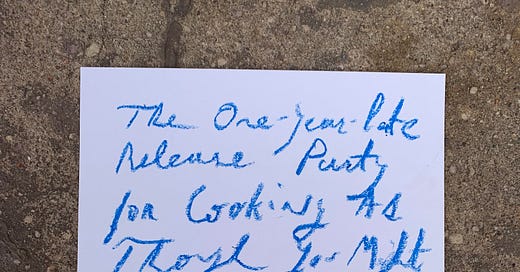 The One-Year-Late
Release Party
for Cooking As
Though You Might